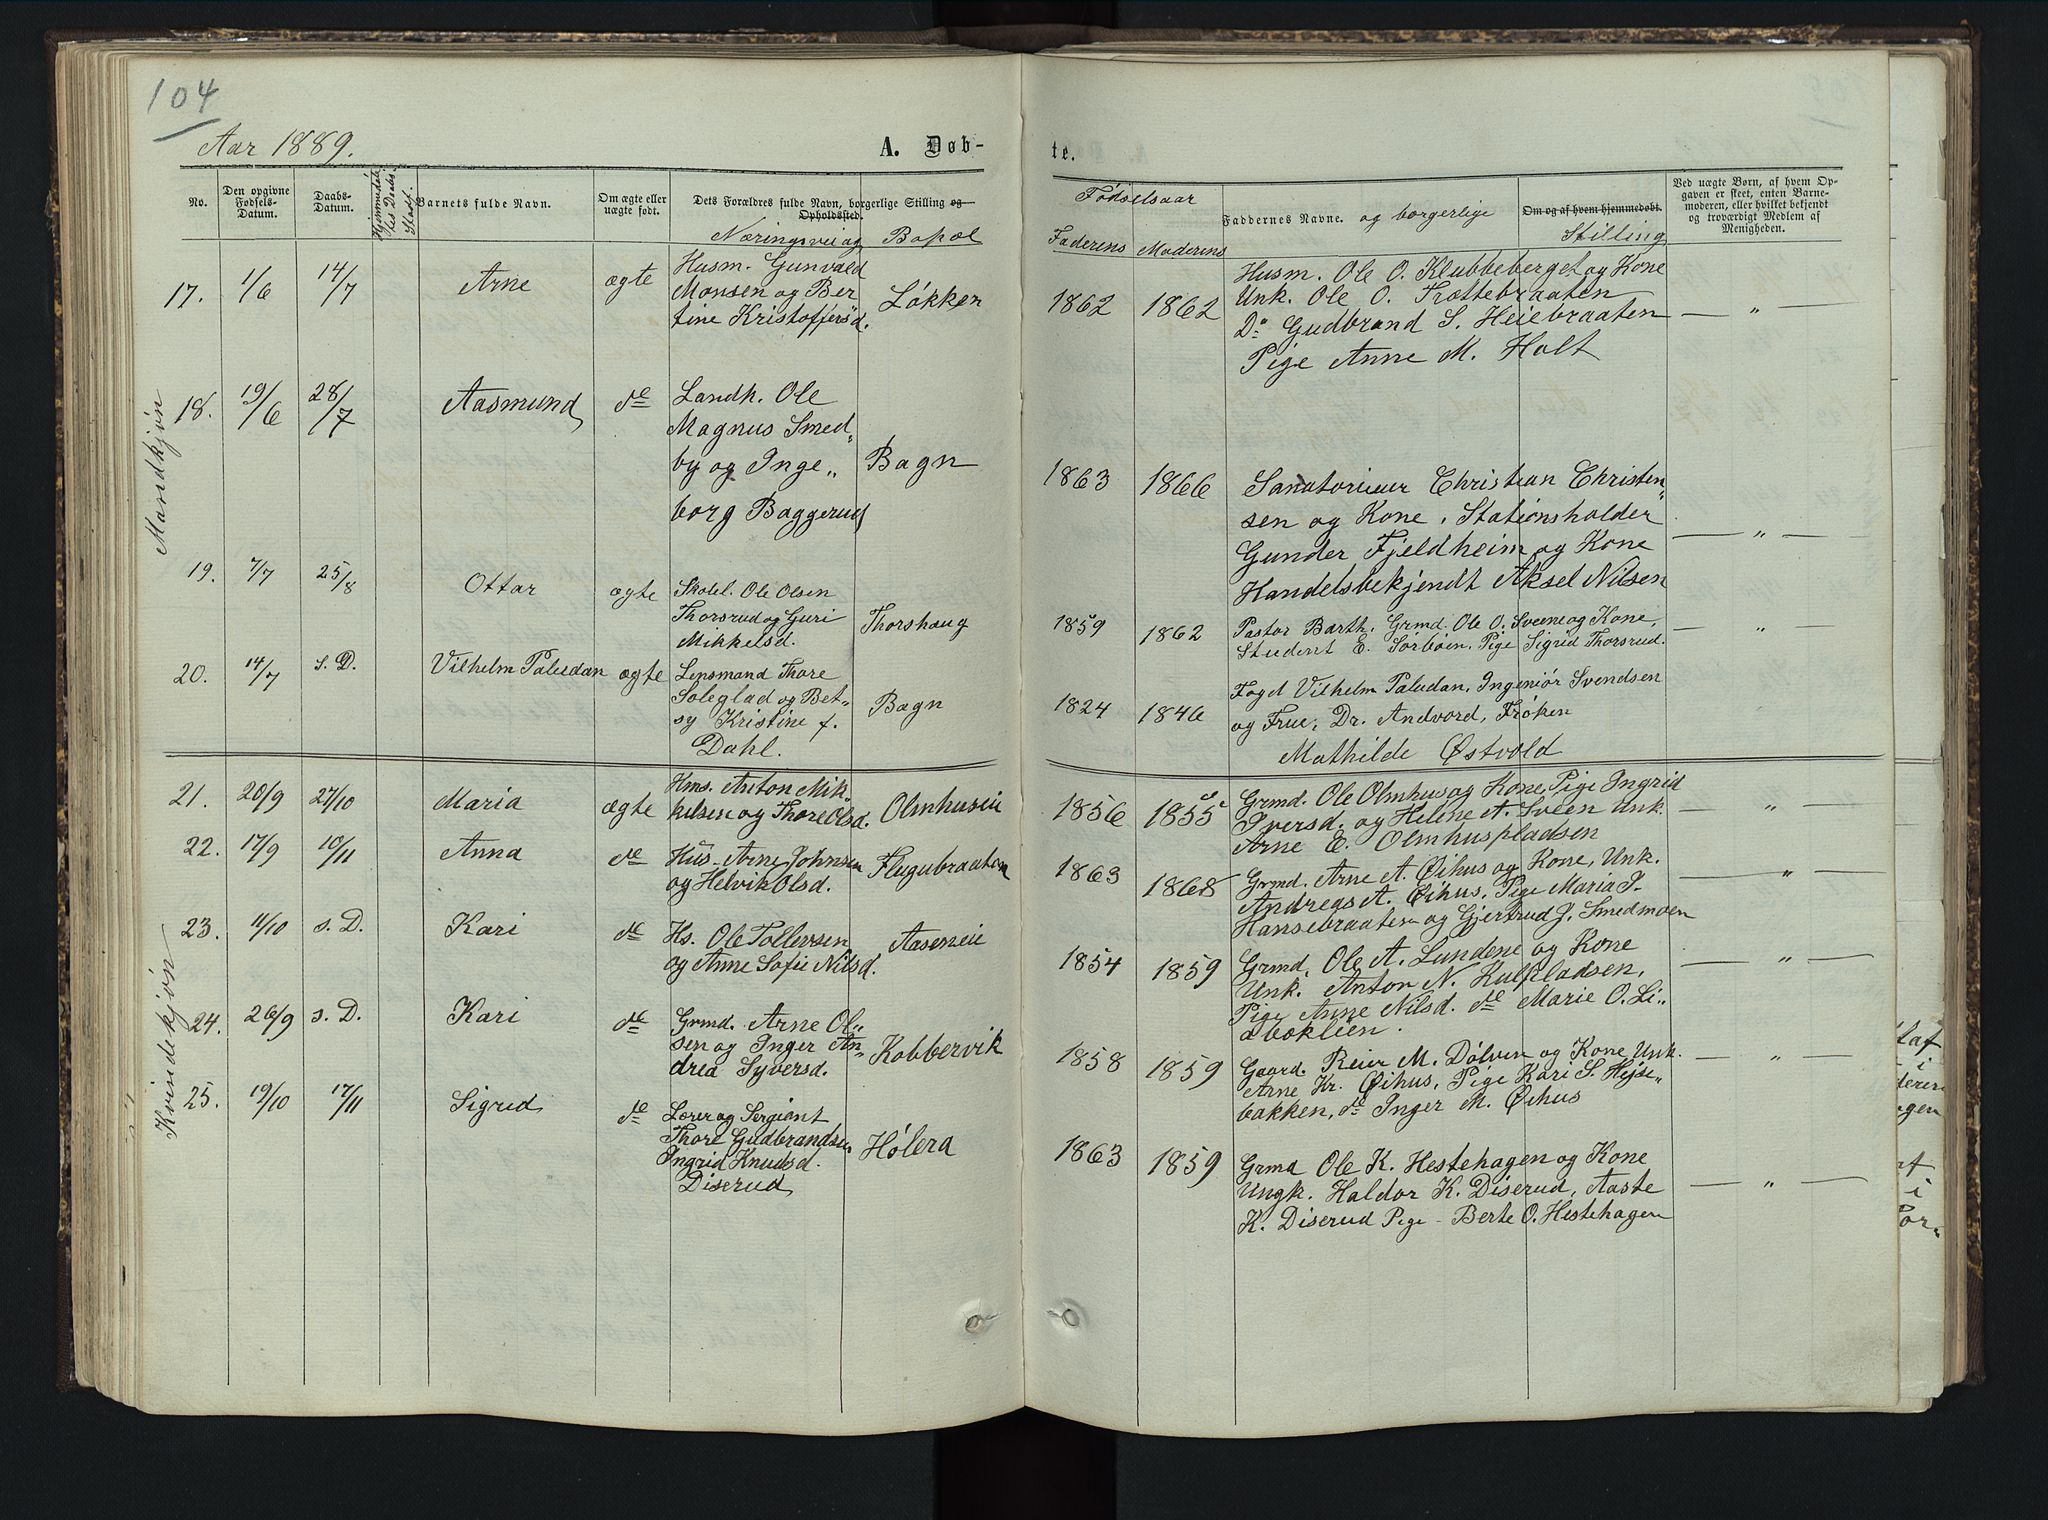 104
Aar 1889.
A. Døb-
te.
No.
Den opgivne
Fødsels-
Datum.
Daabs-
Datum.
Barnets fulde Navn.
Om ægte eller
uægte født.
Dets Forældres fulde Navn, borgerlige Stilling og
Opholdssted.
Næringsvei og Bopæl
Fødselsaar
Faderens
Moderens
Faddernes Navne. og borgerlige
Om og af hvem hjemmedøbt.
Stilling
Ved uægte Børn, af hvem Op-
gaven er skeet, enten Barne-
moderen, eller hvilket bekjendt
og troværdigt Medlem af
Menigheden.
Mandkjøn
17. 1/6 14/7 Arne ægte
Husm. Gunvald
Monsen og Ber
tine Kristoffersd.
Løkken
1862 1862
Husm. Ole O. Klubbeberget og Kone
Unk. Ole O. Trættebraaten
Do Gudbrand S. Heiebraaten
Pige Anne M. Holt
— " —
18. 19/6 28/7 Aasmund de
Landh. Ole
Magnus Smed„
by og Inge„
borg Baggerud
Bagn
1863 1866
Sanatorieier Christian Christen„
sen og Kone, Stationsholder
Gunder Fjeldheim og Kone
Handelsbekjendt Aksel Nilsen
— " —
19. 7/7 25/8 Ottar ægte
Skolel. Ole Olsen
Thorsrud og Guri
Mikkelsd.
Thorshaug
1859 1862
Pastor Barth, Grmd. Ole O. Sveene og Kone,
Student E. Sørbøen, Pige Sigrid Thorsrud.
— " —
20. 14/7 s. D. Vilhelm Paludan ægte
Lensmand Thore
Soleglad og Bet-
sy Kristine f.
Dahl.
Bagn
1824 1846
Fogd Vilhelm Paludan, Ingeniør Svendsen
og Frue, Dr. Andvord, Frøken
Mathilde Østvold
Kvindekjøn
21. 20/9 27/10 Maria ægte
Hms. Anton Mik-
kelsen og Thore Olsd.
Olmhuseie
1856 1855
Grmd. Ole Olmhus og Kone, Pige Ingrid
Iversd. og Helene A. Sveen Unk.
Arne E. Olmhuspladsen
— " —
22. 17/9 10/11 Anna de
Hus- Arne Johnsen
og Helvik Olsd.
Flugubraaten
1863 1868
Grmd. Arne A. Øihus og Kone, Unk.
Andreas A. Øihus, Pige Maria P.
Hansebraaten og Gjertrud J. Smedmoen
— " —
23. 11/10 s. D. Kari de
Hs. Ole Tollevsen
og Anne Sofie Nilsd.
Aaseneie
1854 1859
Grmd, Ole A. Lundene og Kone
Unk. Anton N. Kulpladsen,
Pige Anne Nilsd. de Marie O. Li„
abøklien.
— " —
24. 26/9 s. D. Kari de
Grmd. Arne Ol„
sen og Inger An„
drea Syversd.
Kobbervik
1858 1859
Gaard. Reier M. Dølven og Kone Unk.
Arne Kr. Øihus, Pige Kari S. Hejse„
bakken, de Inger M. Øihus
— " —
25. 19/10 17/11 Sigrid de
Lærer og Sergiant
Thore Gudbrandsen
Ingrid Knudsd.
Diserud
Hølera
1863 1859
Grmd Ole K. Hestehagen og Kone
Ungk. Haldor K. Diserud, Aaste
K. Diserud Pige - Berte O. Hestehagen
— " —